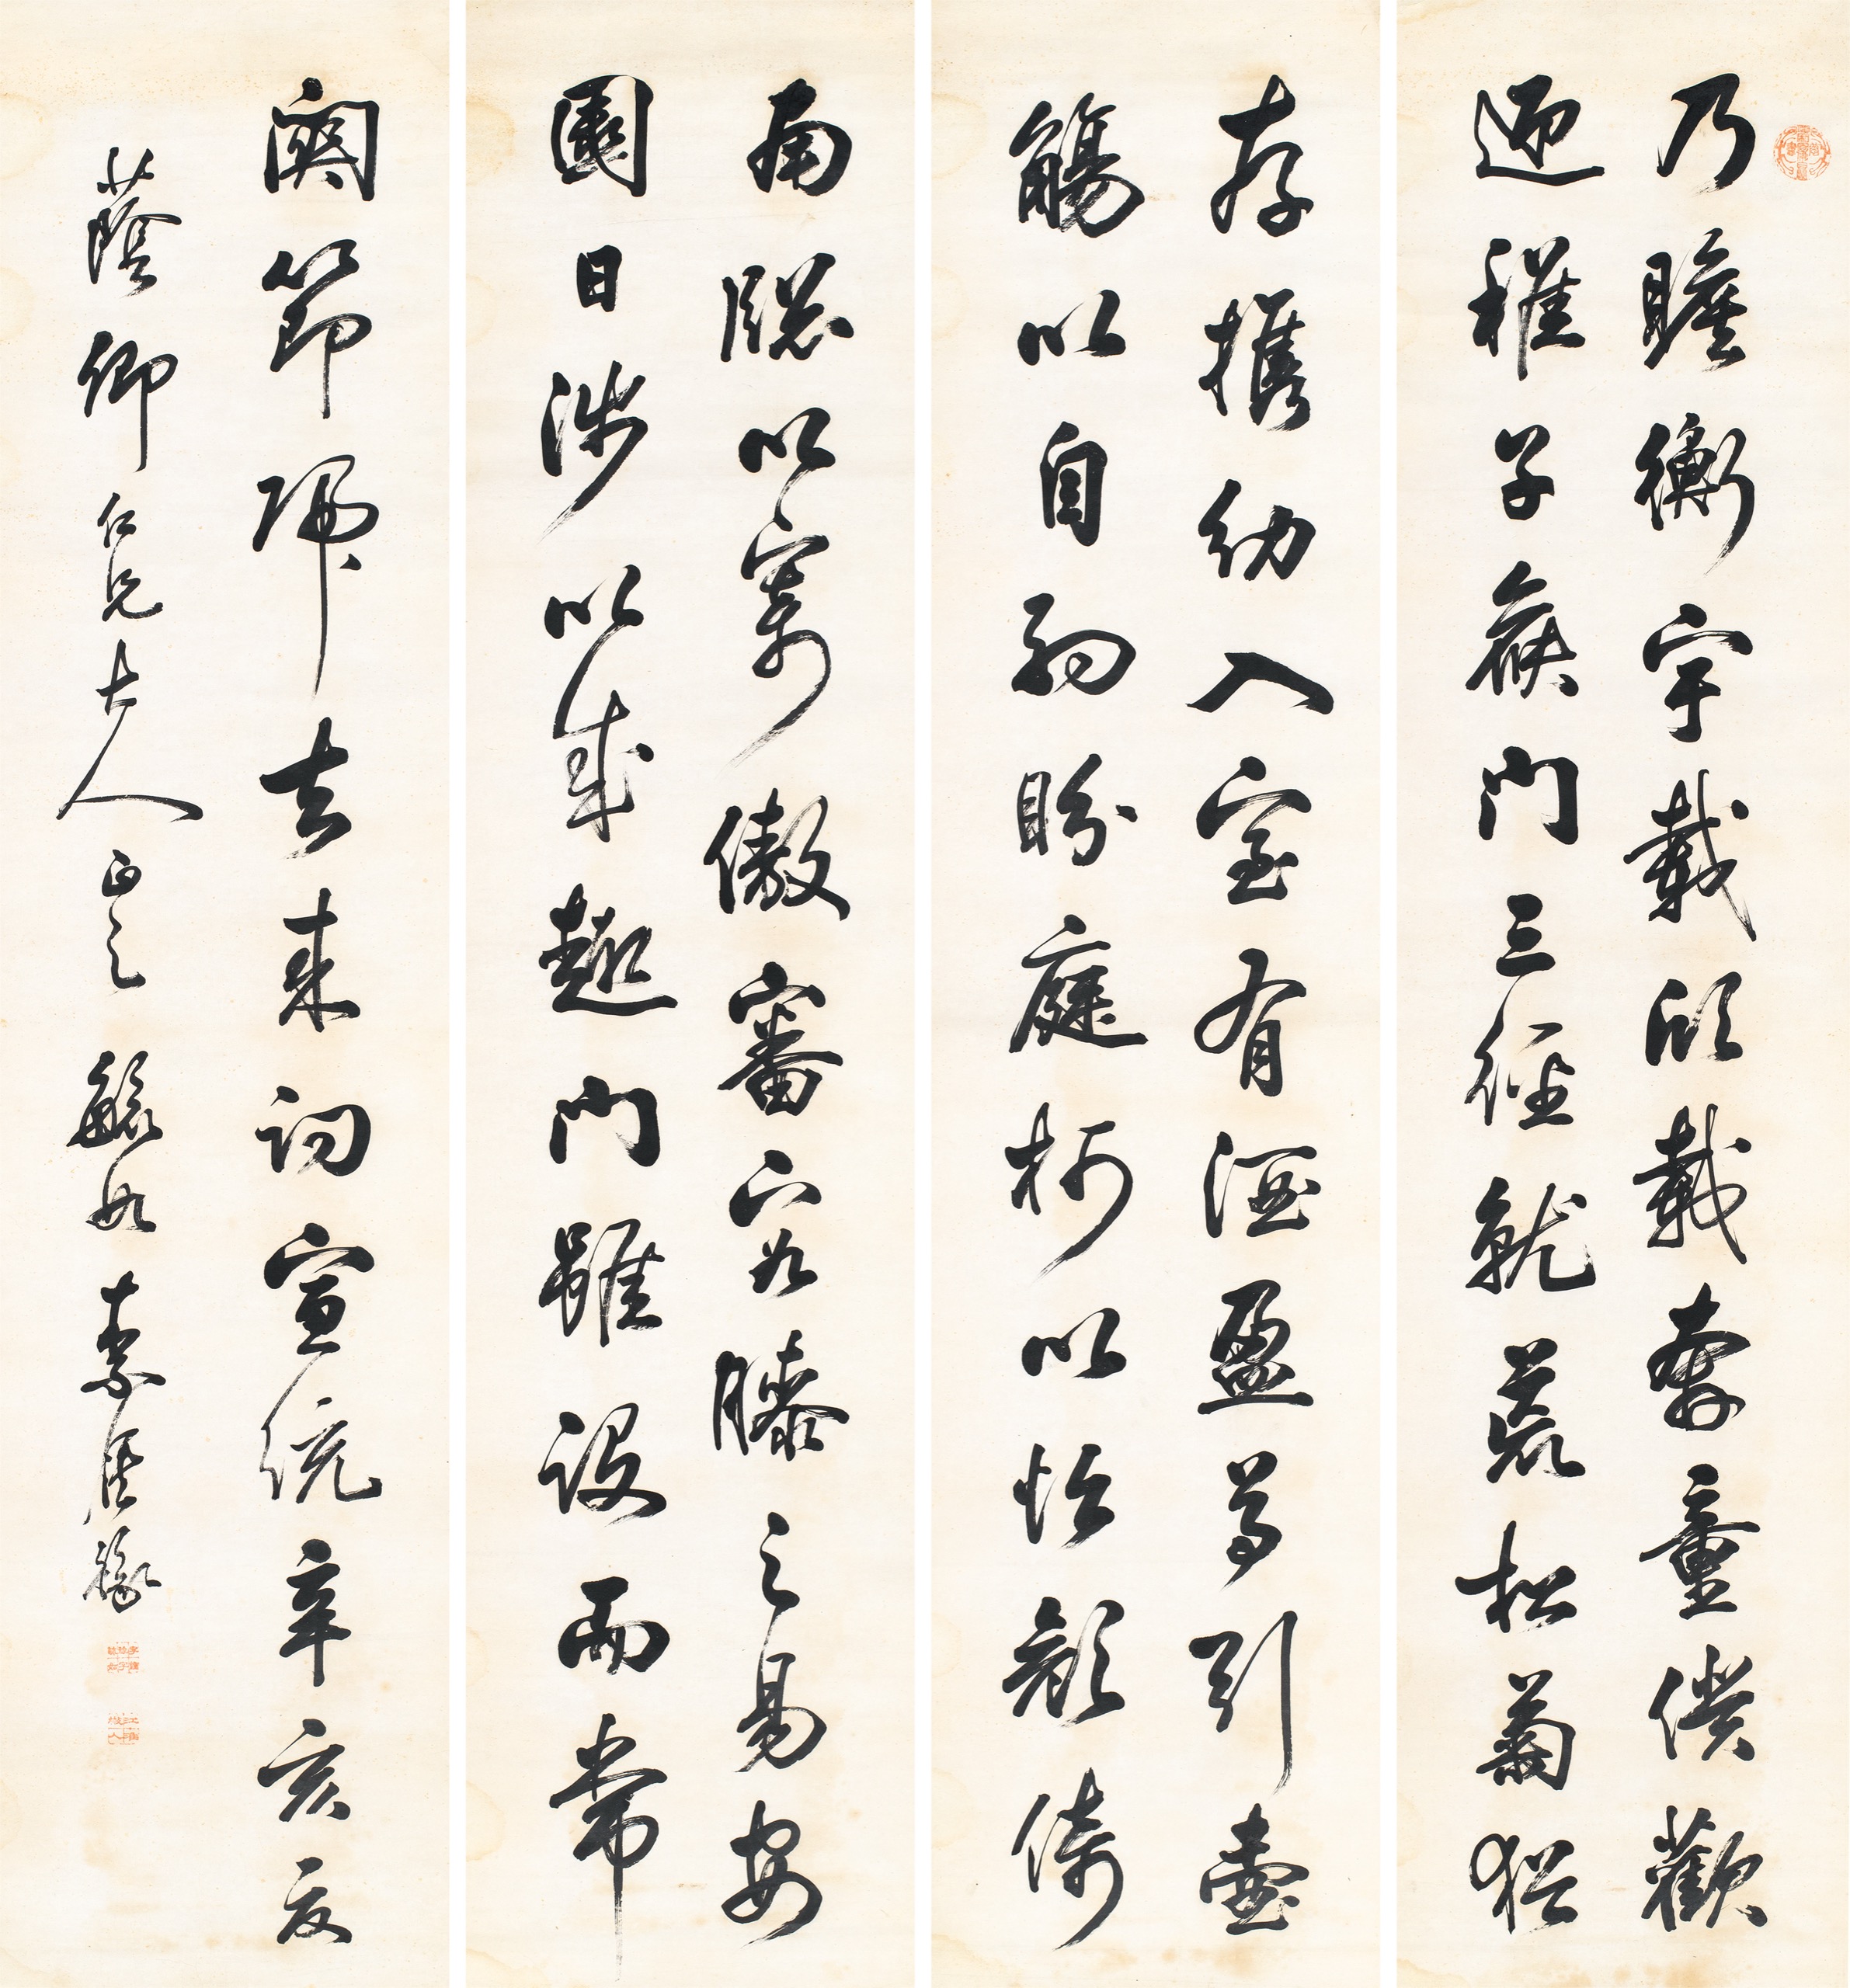 乃瞻衡宇載欣載奔童僕歡
迎稚子候門三徑就荒松菊猶
存攜幼入室有酒盈尊引壺
觴以自酌盼庭柯以怡顏倚
南牕以寄傲審容膝之易安
園日涉以成趣門雖設而常
關節歸去来詞宣統辛亥夏
蔭卿仁兄大人正之 毓如